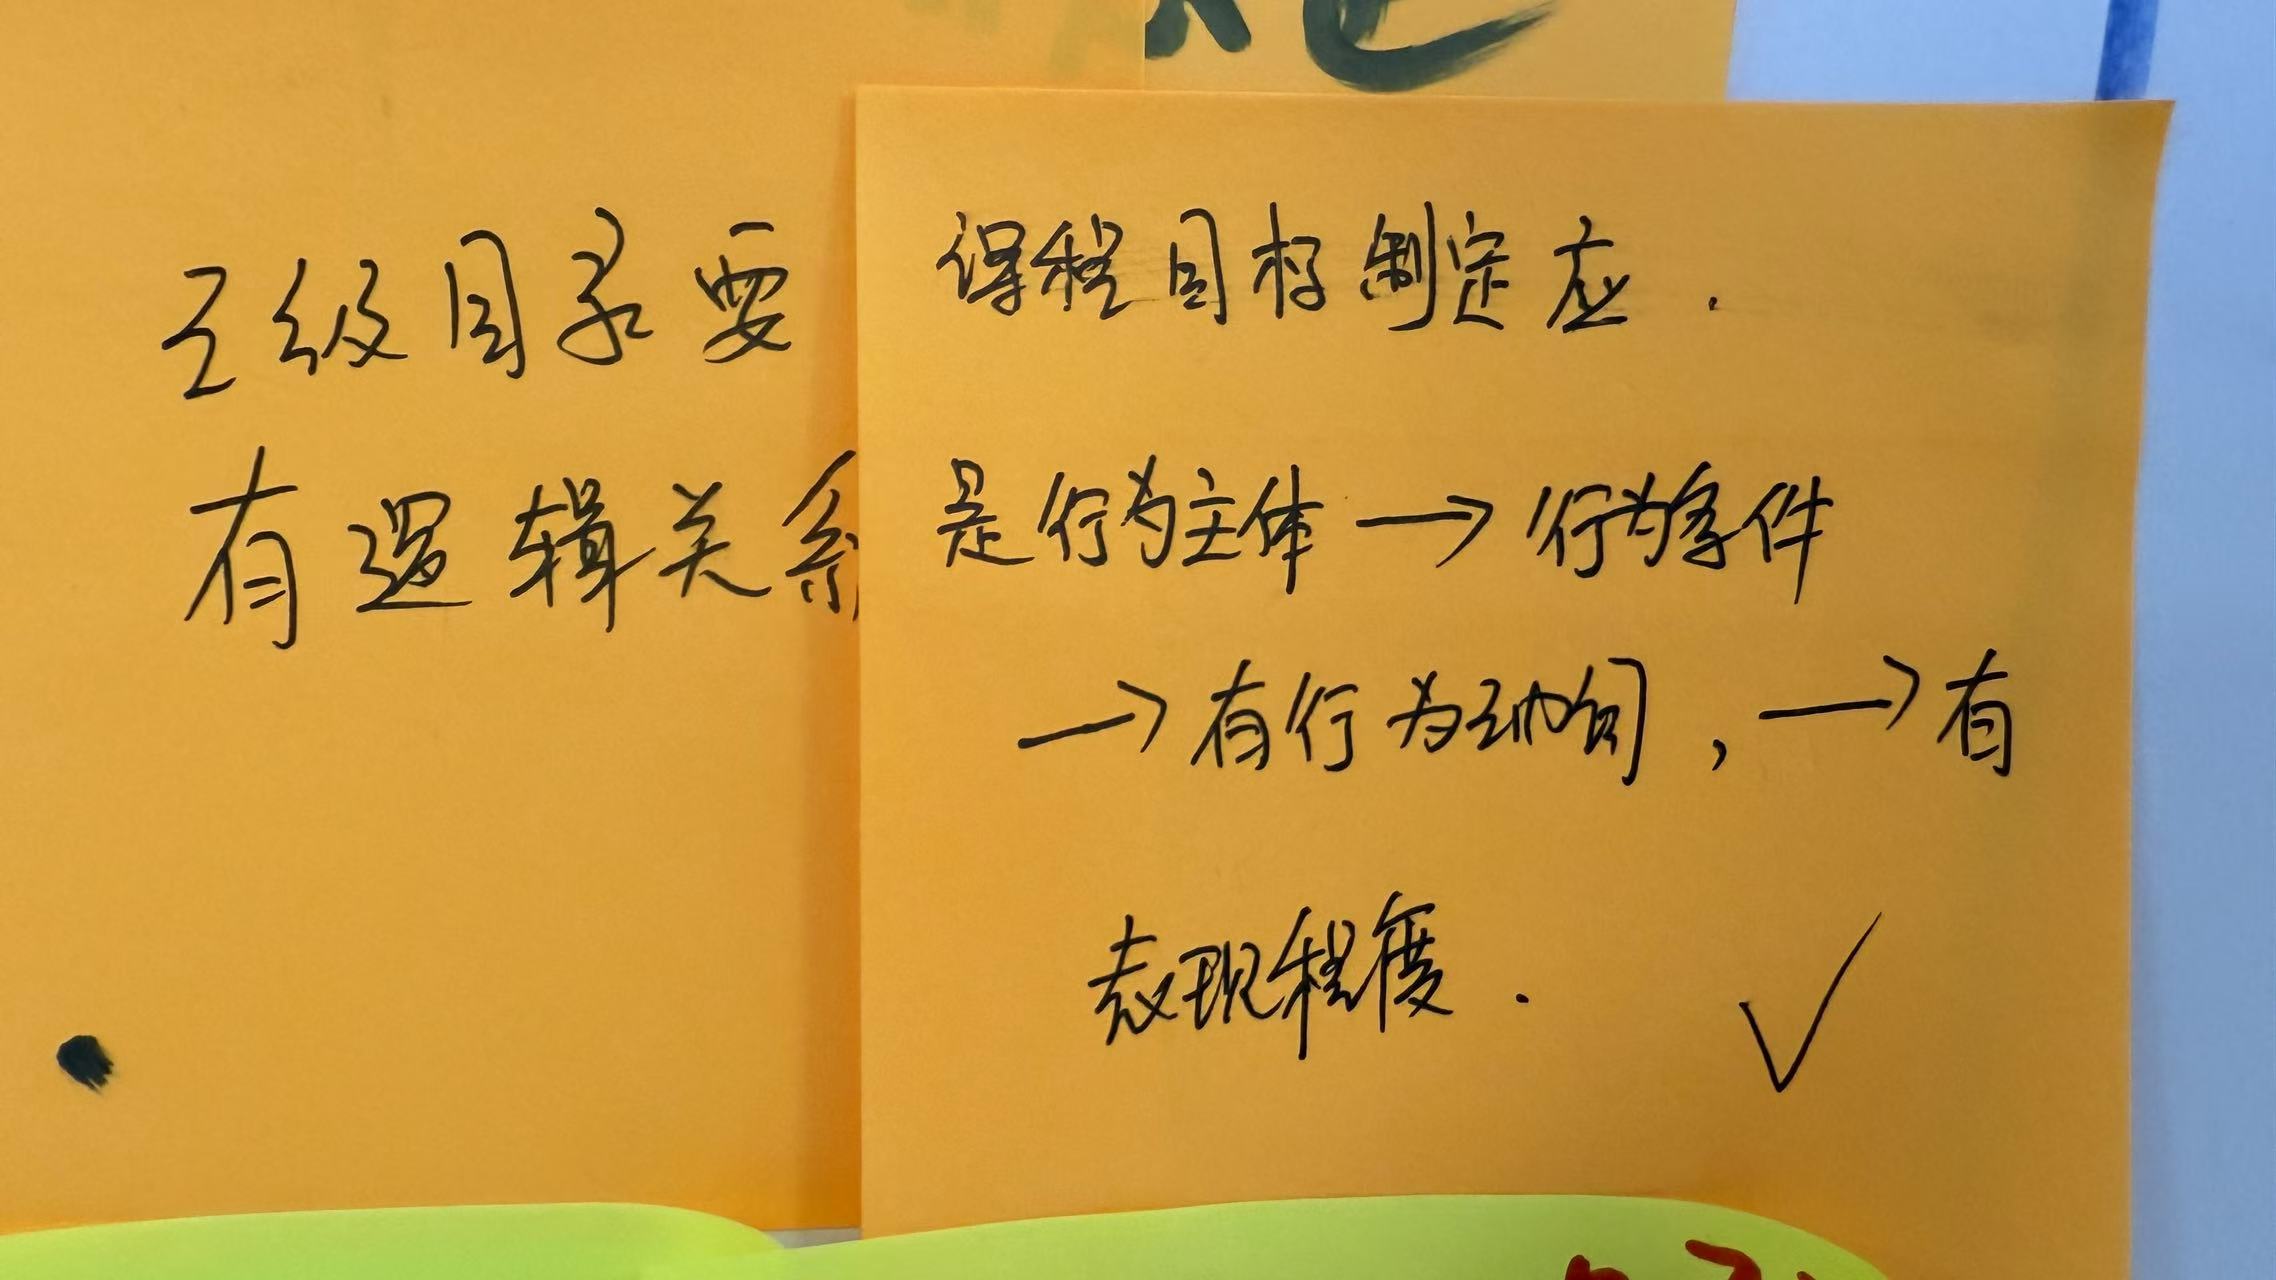 三级目录要
有逻辑关系
课程目标制定应.
是行为主体→行为条件
→有行为动词,→有
表现程度.